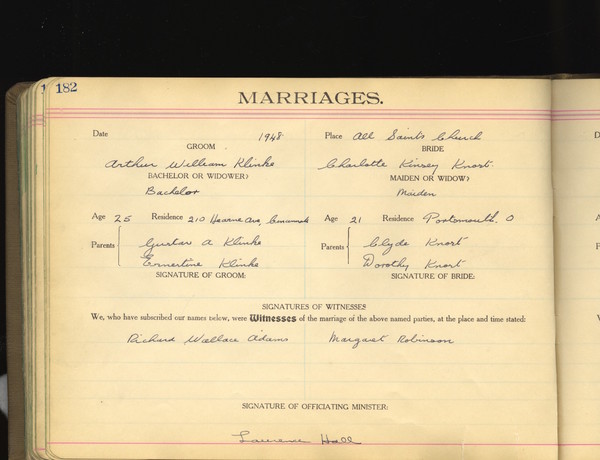 182
MARRIAGES.
Date 1948 Place All Saints Church
GROOM BRIDE
Arthur William Klinke Charlotte Kinsey Knost
BACHELOR OR WIDOWER? MAIDEN OR WIDOW?
Bachelor Maiden
Age 25 Residence 210 Ave, Age 21 Residence Portsmouth, O
Parents Gustav A Klinke Parents Clyde Knost
Ernertine Klinke Dorothy Knost
SIGNATURE OF GROOM: SIGNATURE OF BRIDE:
SIGNATURES OF WITNESSES
We, who have subscribed our names below, were Witnesses of the marriage of the above named parties, at the place and time stated:
Richard Wallace Adams Margaret Robinson
SIGNATURE OF OFFICIATING MINISTER:
Laurence Hall